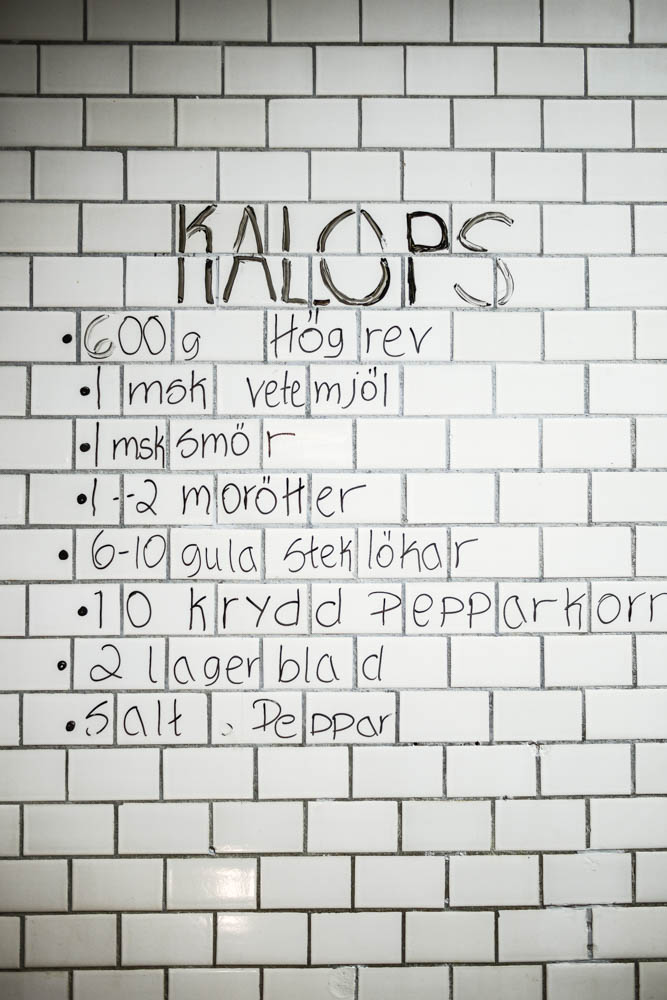 KALOPS
• 600g Högrev
• 1 msk vetemjöl
• 1 msk smör
• 1--2 morötter
• 6-10 gula steklökar
• 10 krydd Pepparkorn
• 2 lagerblad
• Salt . Peppar